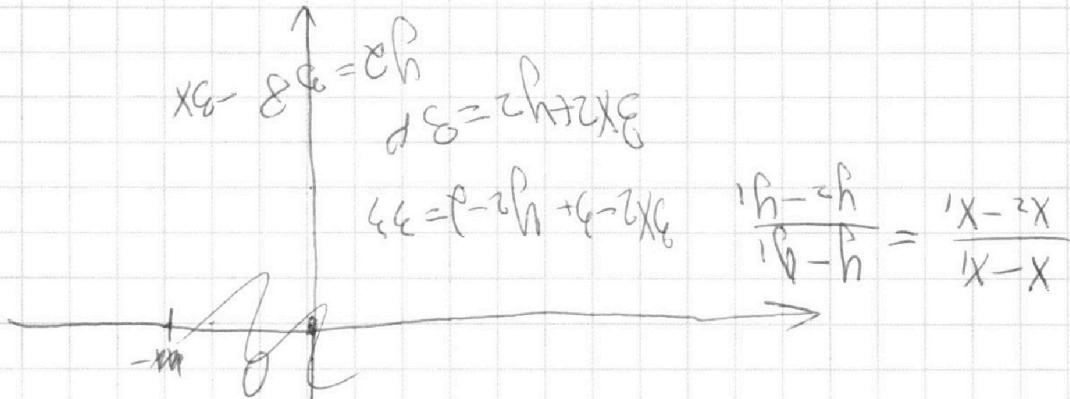 x - x₁ / x₂ - x₁ = y - y₁ / y₂ - y₁
3x2-3+y2-2=33
3x2+y2=38
y2=38-3x